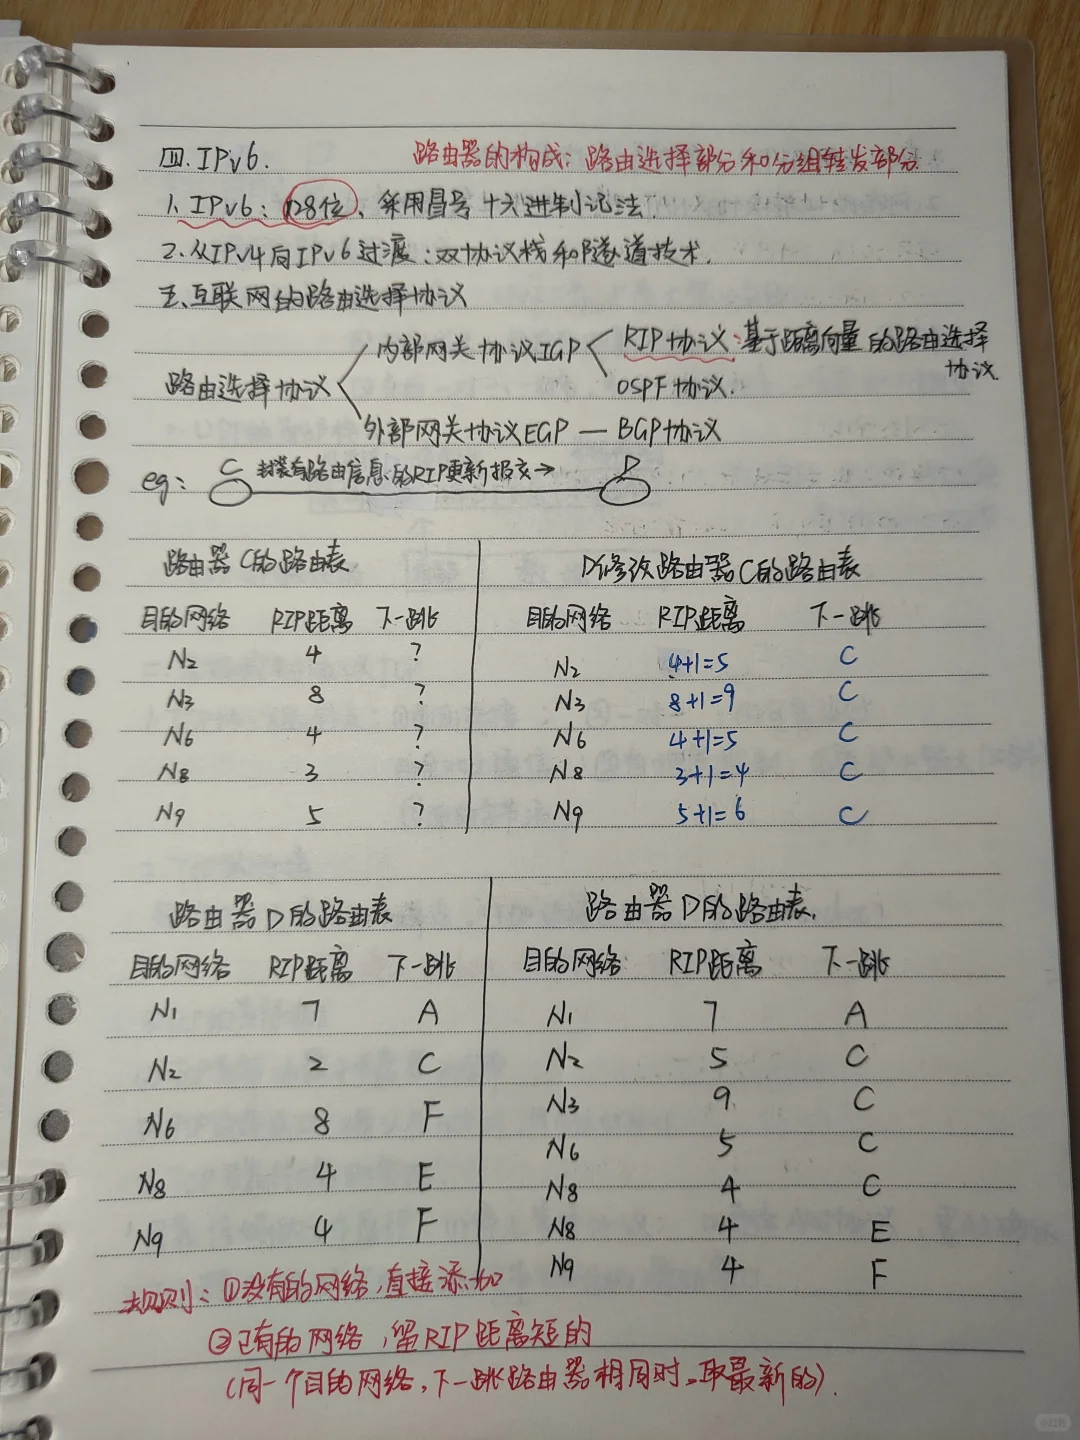 四.IPv6.
路由器的构成：路由选择部分和分组转发部分.
1.IPv6：128位、采用冒号十六进制记法.
2.从IPv4向IPv6过渡：双协议栈和隧道技术.
五、互联网的路由选择协议
路由选择协议
内部网关协议IGP
RIP协议：基于距离向量的路由选择协议.
OSPF协议.
外部网关协议EGP — BGP协议
eg：
C 封装有路由信息的RIP更新报文→ D
路由器C的路由表
目的网络 RIP距离 下一跳
N2 4 ?
N3 8 ?
N6 4 ?
N8 3 ?
N9 5 ?
D修改路由器C的路由表
目的网络 RIP距离 下一跳
N2 4+1=5 C
N3 8+1=9 C
N6 4+1=5 C
N8 3+1=4 C
N9 5+1=6 C
路由器D的路由表
目的网络 RIP距离 下一跳
N1 7 A
N2 2 C
N6 8 F
N8 4 E
N9 4 F
路由器D的路由表.
目的网络 RIP距离 下一跳
N1 7 A
N2 5 C
N3 9 C
N6 5 C
N8 4 C
N8 4 E
N9 4 F
规则：①没有的网络,直接添加
②已有的网络,留RIP距离短的
(同一个目的网络,下一跳路由器相同时,取最新的).
小红书